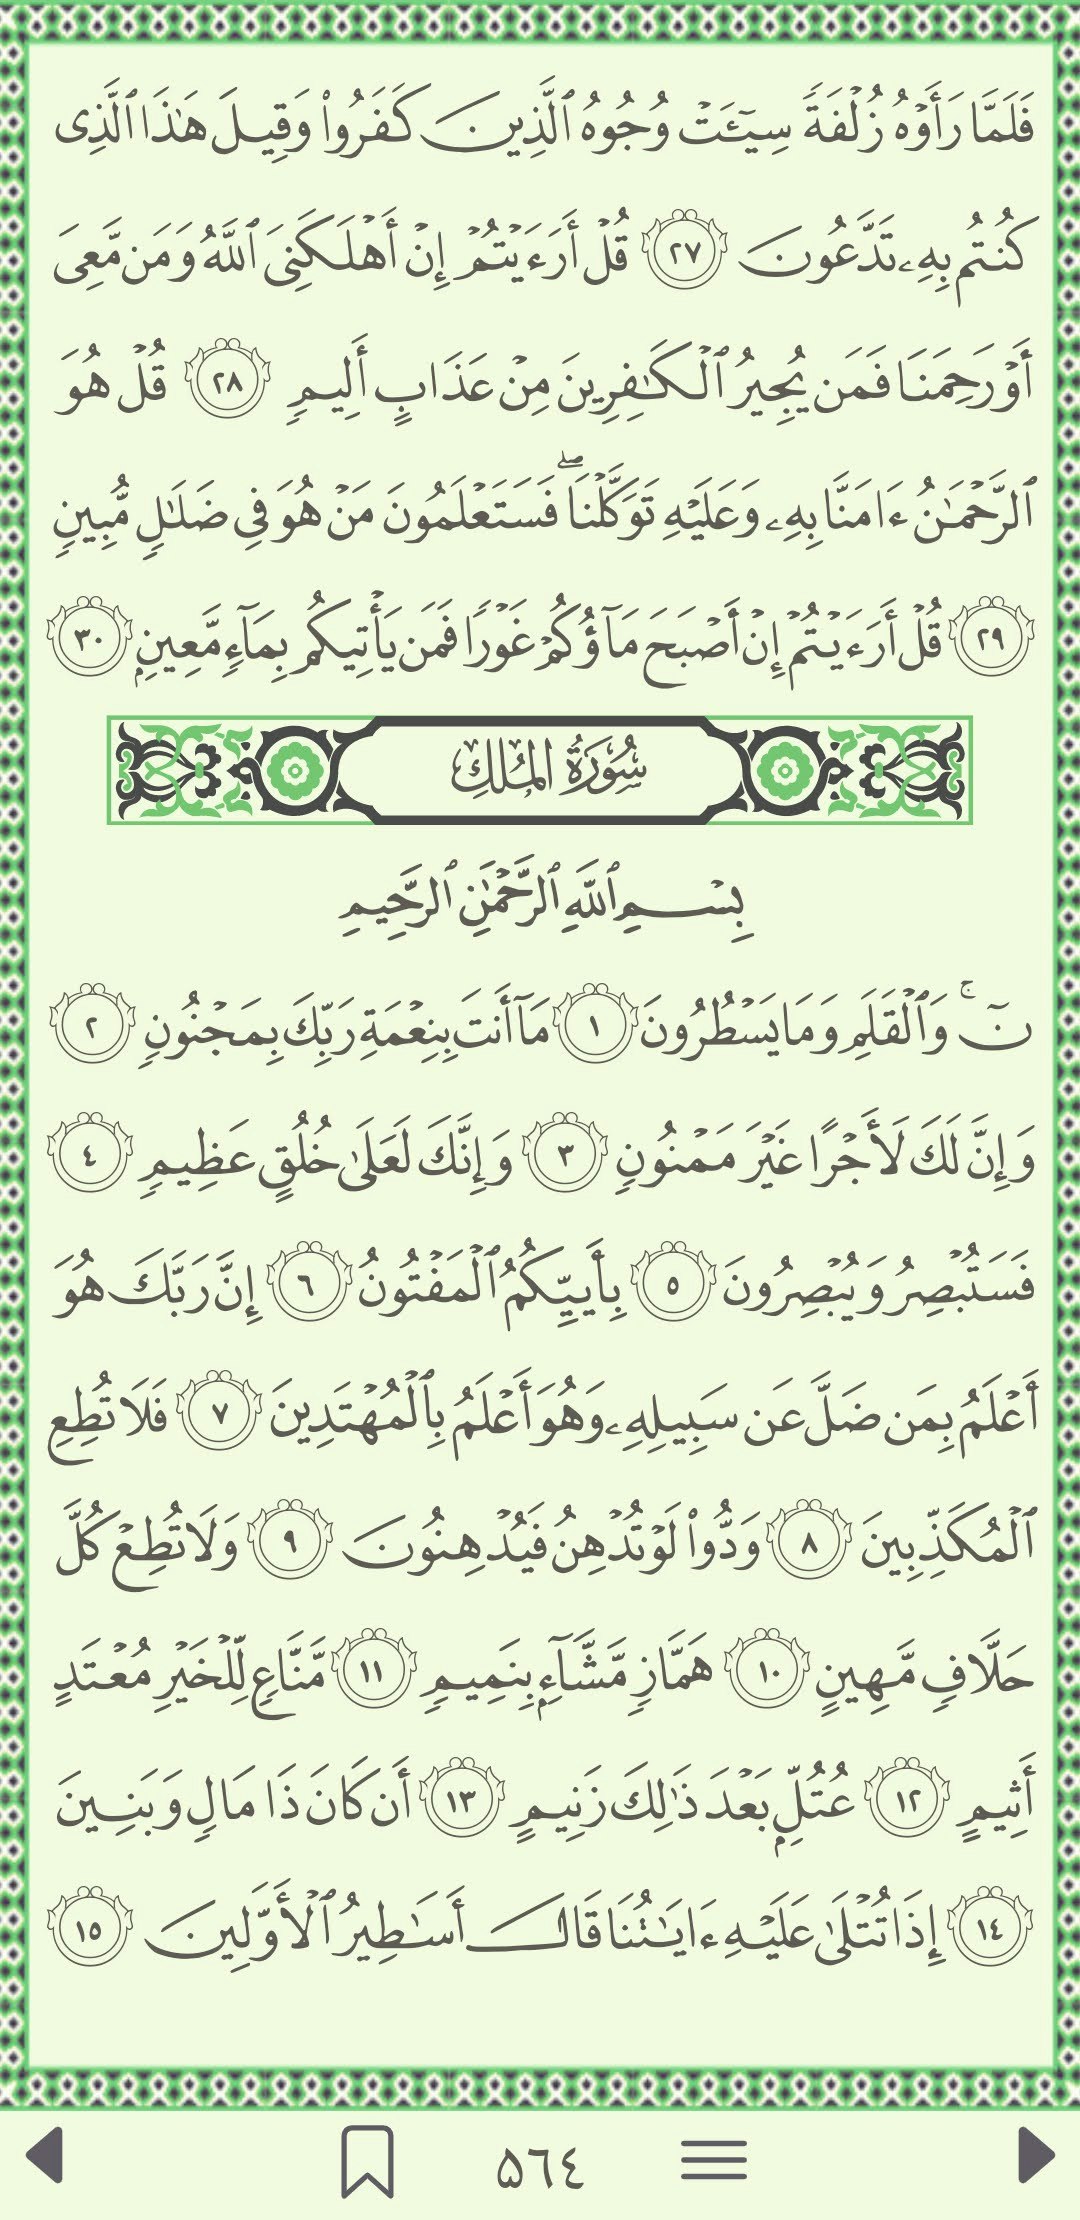 فَلَمَّا رَأَوْهُ زُلْفَةً سِيٓـَٔتْ وُجُوهُ ٱلَّذِينَ كَفَرُوا۟ وَقِيلَ هَـٰذَا ٱلَّذِى
كُنتُم بِهِۦ تَدَّعُونَ ٢٧ قُلْ أَرَءَيْتُمْ إِنْ أَهْلَكَنِىَ ٱللَّهُ وَمَن مَّعِىَ
أَوْ رَحِمَنَا فَمَن يُجِيرُ ٱلْكَـٰفِرِينَ مِنْ عَذَابٍ أَلِيمٍ ٢٨ قُلْ هُوَ
ٱلرَّحْمَـٰنُ ءَامَنَّا بِهِۦ وَعَلَيْهِ تَوَكَّلْنَا ۖ فَسَتَعْلَمُونَ مَنْ هُوَ فِى ضَلَـٰلٍ مُّبِينٍ
٢٩ قُلْ أَرَءَيْتُمْ إِنْ أَصْبَحَ مَآؤُكُمْ غَوْرًا فَمَن يَأْتِيكُم بِمَآءٍ مَّعِينٍۭ ٣٠
سُورَةُ المُلكِ
بِسْمِ ٱللَّهِ ٱلرَّحْمَـٰنِ ٱلرَّحِيمِ
نٓ ۚ وَٱلْقَلَمِ وَمَا يَسْطُرُونَ ١ مَآ أَنتَ بِنِعْمَةِ رَبِّكَ بِمَجْنُونٍ ٢
وَإِنَّ لَكَ لَأَجْرًا غَيْرَ مَمْنُونٍ ٣ وَإِنَّكَ لَعَلَىٰ خُلُقٍ عَظِيمٍ ٤
فَسَتُبْصِرُ وَيُبْصِرُونَ ٥ بِأَييِّكُمُ ٱلْمَفْتُونُ ٦ إِنَّ رَبَّكَ هُوَ
أَعْلَمُ بِمَن ضَلَّ عَن سَبِيلِهِۦ وَهُوَ أَعْلَمُ بِٱلْمُهْتَدِينَ ٧ فَلَا تُطِعِ
ٱلْمُكَذِّبِينَ ٨ وَدُّوا۟ لَوْ تُدْهِنُ فَيُدْهِنُونَ ٩ وَلَا تُطِعْ كُلَّ
حَلَّافٍ مَّهِينٍ ١٠ هَمَّازٍ مَّشَّآءٍۭ بِنَمِيمٍ ١١ مَّنَّاعٍ لِّلْخَيْرِ مُعْتَدٍ
أَثِيمٍ ١٢ عُتُلٍّۭ بَعْدَ ذَٰلِكَ زَنِيمٍ ١٣ أَن كَانَ ذَا مَالٍ وَبَنِينَ
١٤ إِذَا تُتْلَىٰ عَلَيْهِ ءَايَـٰتُنَا قَالَ أَسَـٰطِيرُ ٱلْأَوَّلِينَ ١٥
٥٦٤